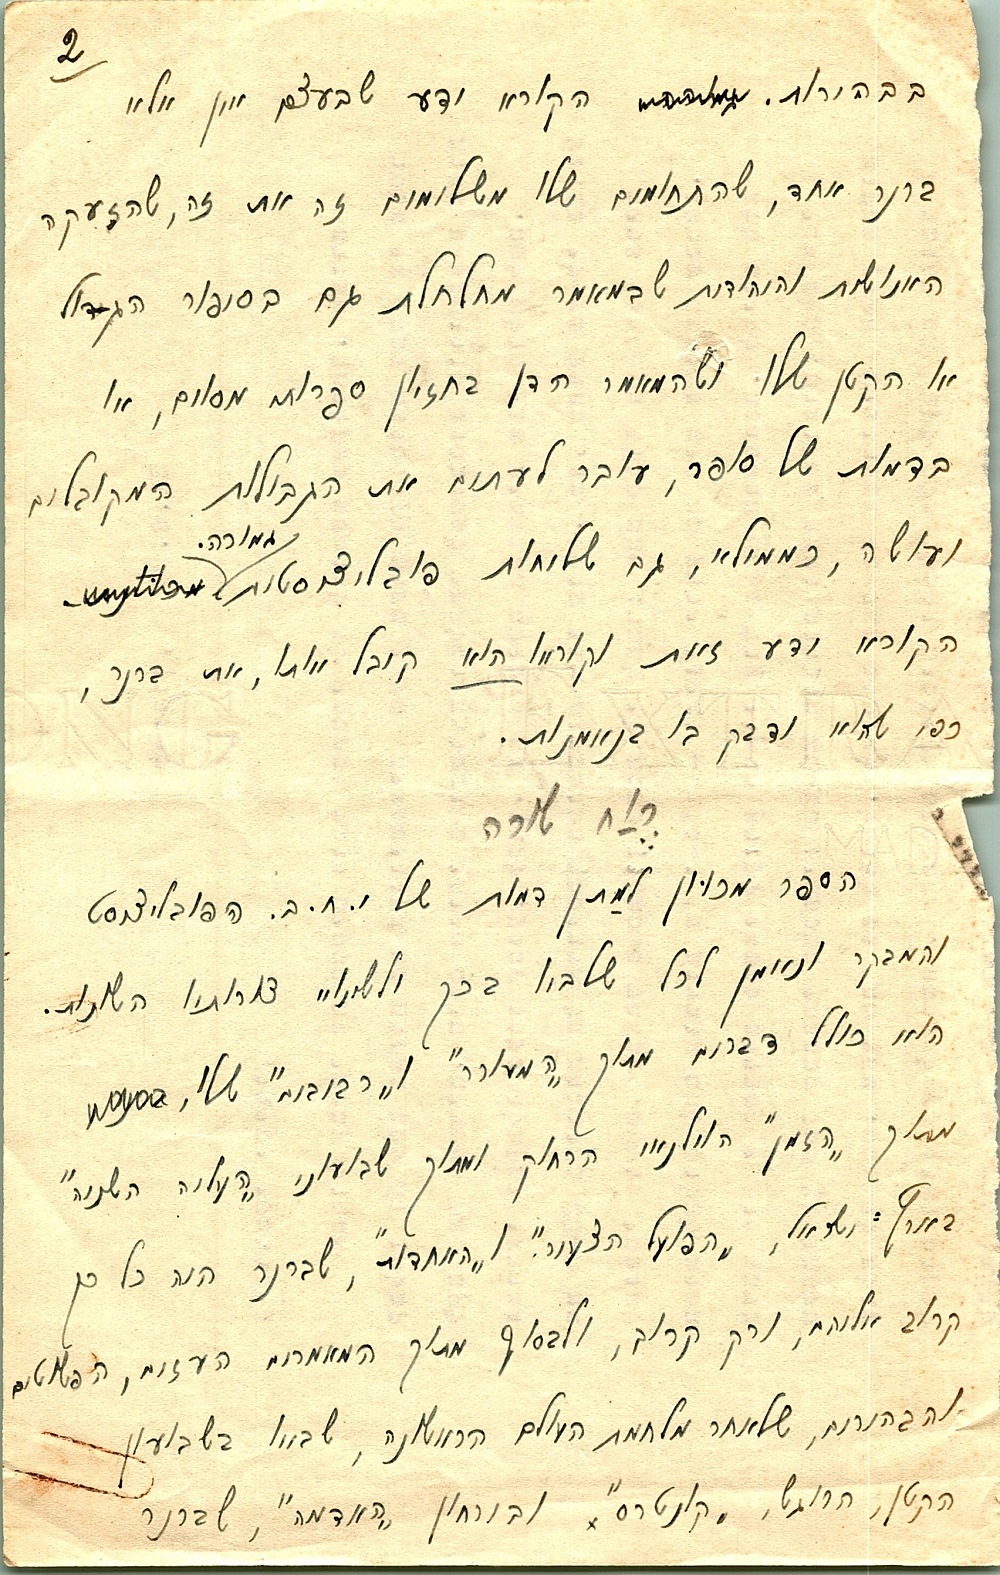 2
בבהירות. הקורא יודע שבעצם אין אלא
ברנר אחד, שהתחומים שלו משלימים זה את זה, שהזעקה
האנושית והיהודית שבמאמר מחלחלת גם בסיפור הגדול
או הקטן שלו ושהמאמר הדן בחזיון ספרותי מסוים, או
בדמות של סופר, עובר לעתים את הגבולות המקובלים
ועושה, כממילא, גם שליחות פובליציסטית גמורה.
הקורא יודע זאת וקוראו הוא קיבל אותו, את ברנר,
כפי שהוא ודבק בו בנאמנות.
רֶוַח שורה
הספר מכוון למַתן דמות של י. ח. ב. הפובליציסט
והמבקר ונאמן לכל שלבא בכך ולשינויי צורותיו השונות.
הוא כולל דברים מתוך „המעורר" ו„רביבים" שלו,
מתוך „הזמן" הוילנאי הרחוק ומתוך שבועוני „העליה השניה"
בארץ־ישראל, „הפועל הצעיר" ו„האחדות", שברנר היה כל כך
קרוב אליהם, ורק קרוב, ולבסוף מתוך המאמרים העזים, הפשוטים
והבהירים, שלאחר מלחמת העולם הראשונה, שבאו בשבועון
הקטן, הרוגש, „קונטרס" ובירחון „האדמה", שברנר